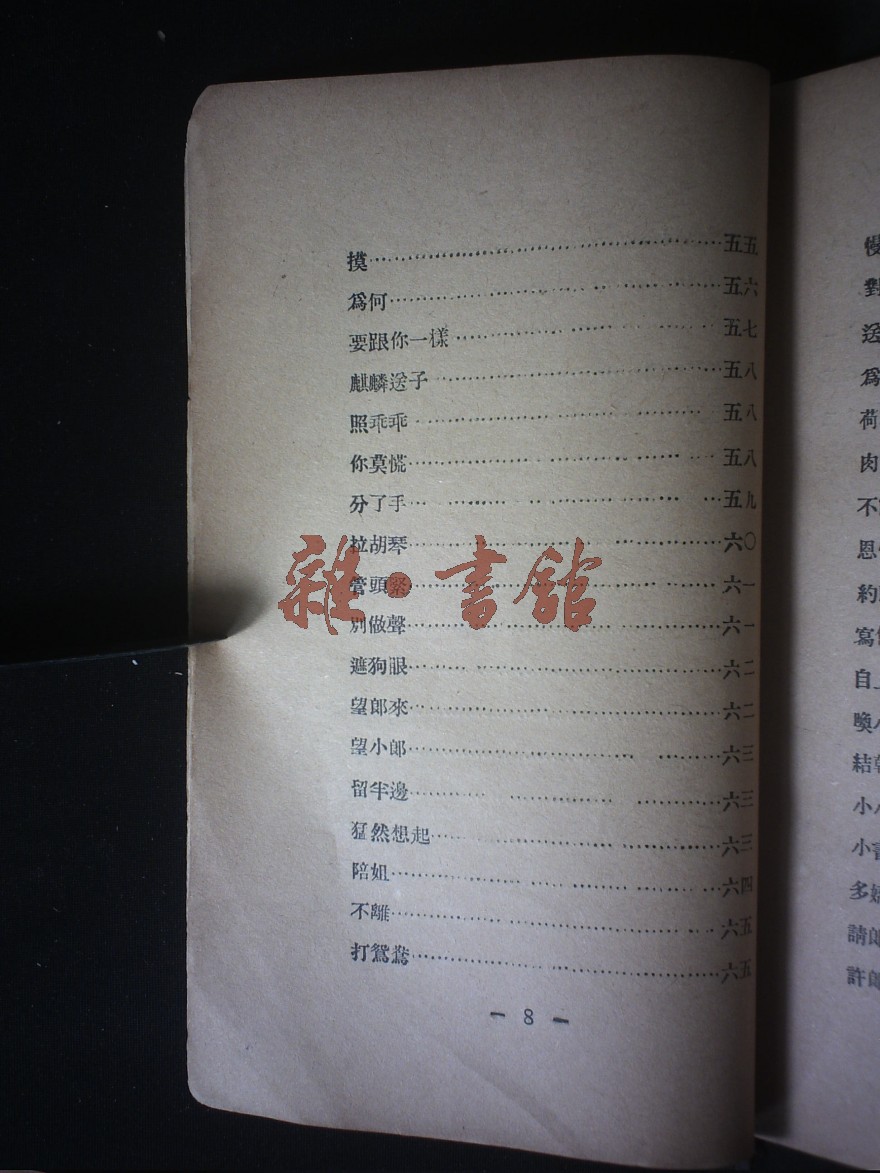 摸……五五
爲何……五六
要跟你一樣……五七
麒麟送子……五八
照乖乖……五八
你莫慌……五八
分了手……五九
拉胡琴……六〇
管頭緊……六一
別做聲……六一
遮狗眼……六二
望郎來……六二
望小郎……六三
留半邊……六三
猛然想起……六三
陪姐……六四
不離……六五
打鴛鴦……六五
— 8 —
雜·書館
對
送
爲
荷
肉
不
恩
約
寫
自
喚
結
小
小
多
請郎
許郎